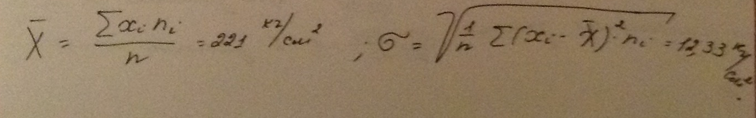 X̄ = Σxᵢnᵢ/n = 221 кг/см² ; σ = √(1/n Σ(xᵢ - X̄)²nᵢ) = 12,33 кг/см².